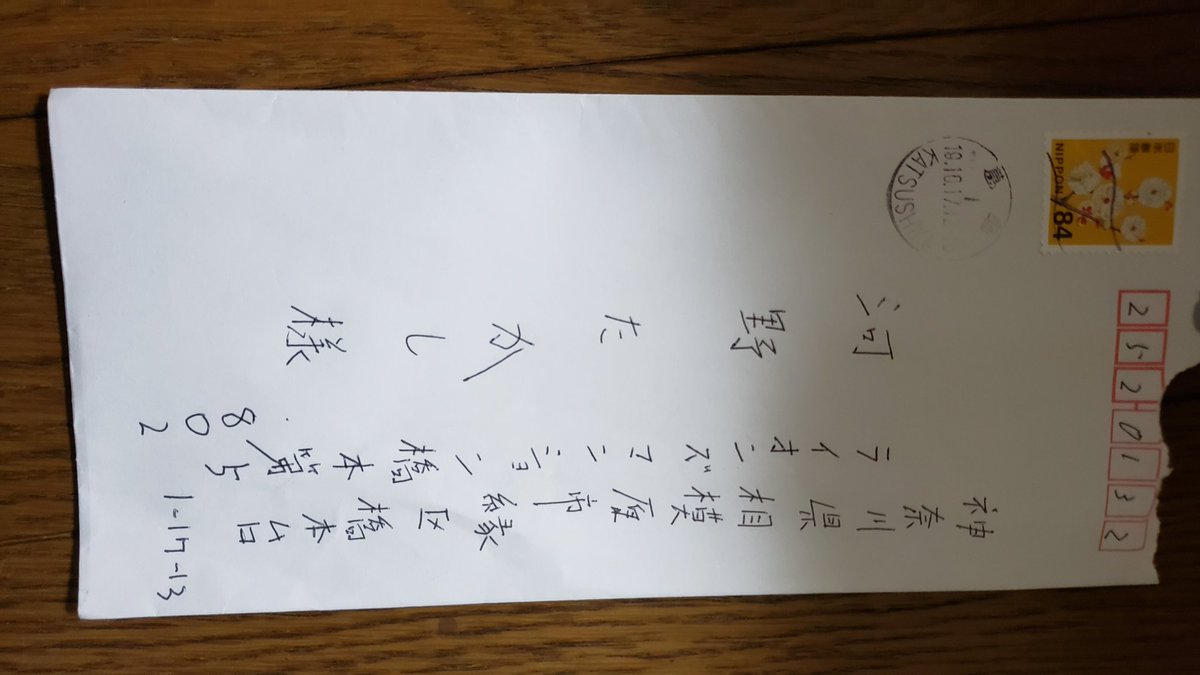 日本郵便
NIPPON 84
19.10.17
KATSUSHIKA
2520132
神奈川県相模原市緑区橋本台
1-17-13
ライオンズマンション橋本第5
802
河野たかし様